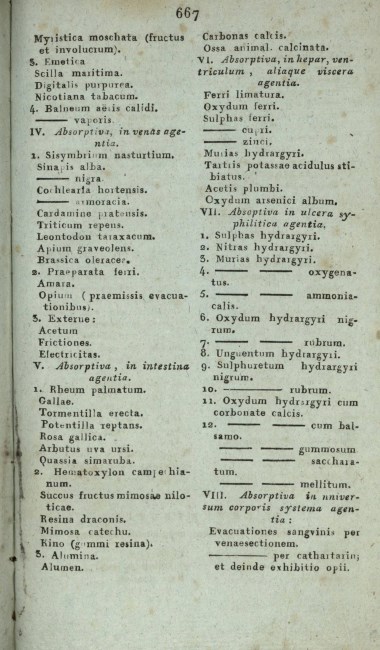 667
Myristica moschata (fructus
et involucrum).
3. Emetica
Scilla maritima.
Digitalis purpurea.
Nicotiana tabacum.
4. Balneum aëris calidi.
——— vaporis.
IV. Absorptiva, in venas age-
ntia.
1. Sisymbrium nasturtium.
Sinapis alba.
——— nigra.
Cochlearia hortensis.
——— armoracia.
Cardamine pratensis.
Triticum repens.
Leontodon taraxacum.
Apium graveolens.
Brassica oleracea.
2. Praeparata ferri.
Amara.
Opium (praemissis evacua-
tionibus).
3. Externe:
Acetum
Frictiones.
Electricitas.
V. Absorptiva, in intestina
agentia.
1. Rheum palmatum.
Gallae.
Tormentilla erecta.
Potentilla reptans.
Rosa gallica.
Arbutus uva ursi.
Quassia simaruba.
2. Hematoxylon campechia-
num.
Succus fructus mimosae nilo-
ticae.
Resina draconis.
Mimosa catechu.
Kino (gummi resina).
3. Alumina.
Alumen.
Carbonas calcis.
Ossa animal. calcinata.
VI. Absorptiva, in hepar, ven-
triculum, aliaque viscera
agentia.
Ferri limatura.
Oxydum ferri.
Sulphas ferri.
——— cupri.
——— zinci.
Murias hydrargyri.
Tartris potassae acidulus sti-
biatus.
Acetis plumbi.
Oxydum arsenici album.
VII. Absoptiva in ulcera sy-
philitica agentia.
1. Sulphas hydrargyri.
2. Nitras hydrargyri.
3. Murias hydrargyri.
4. ——— ——— oxygena-
tus.
5. ——— ——— ammonia-
calis.
6. Oxydum hydrargyri nig-
rum.
7. ——— ——— rubrum.
8. Unguentum hydrargyri.
9. Sulphuretum hydrargyri
nigrum.
10. ——— ——— rubrum.
11. Oxydum hydrargyri cum
carbonate calcis.
12. ——— ——— cum bal-
samo.
——— ——— gummosum
——— ——— sacchara-
tum.
——— ——— mellitum.
VIII. Absorptiva in univer-
sum corporis systema agen-
tia:
Evacuationes sangvinis per
venaesectionem.
——— per cathartarin;
et deinde exhibitio opii.